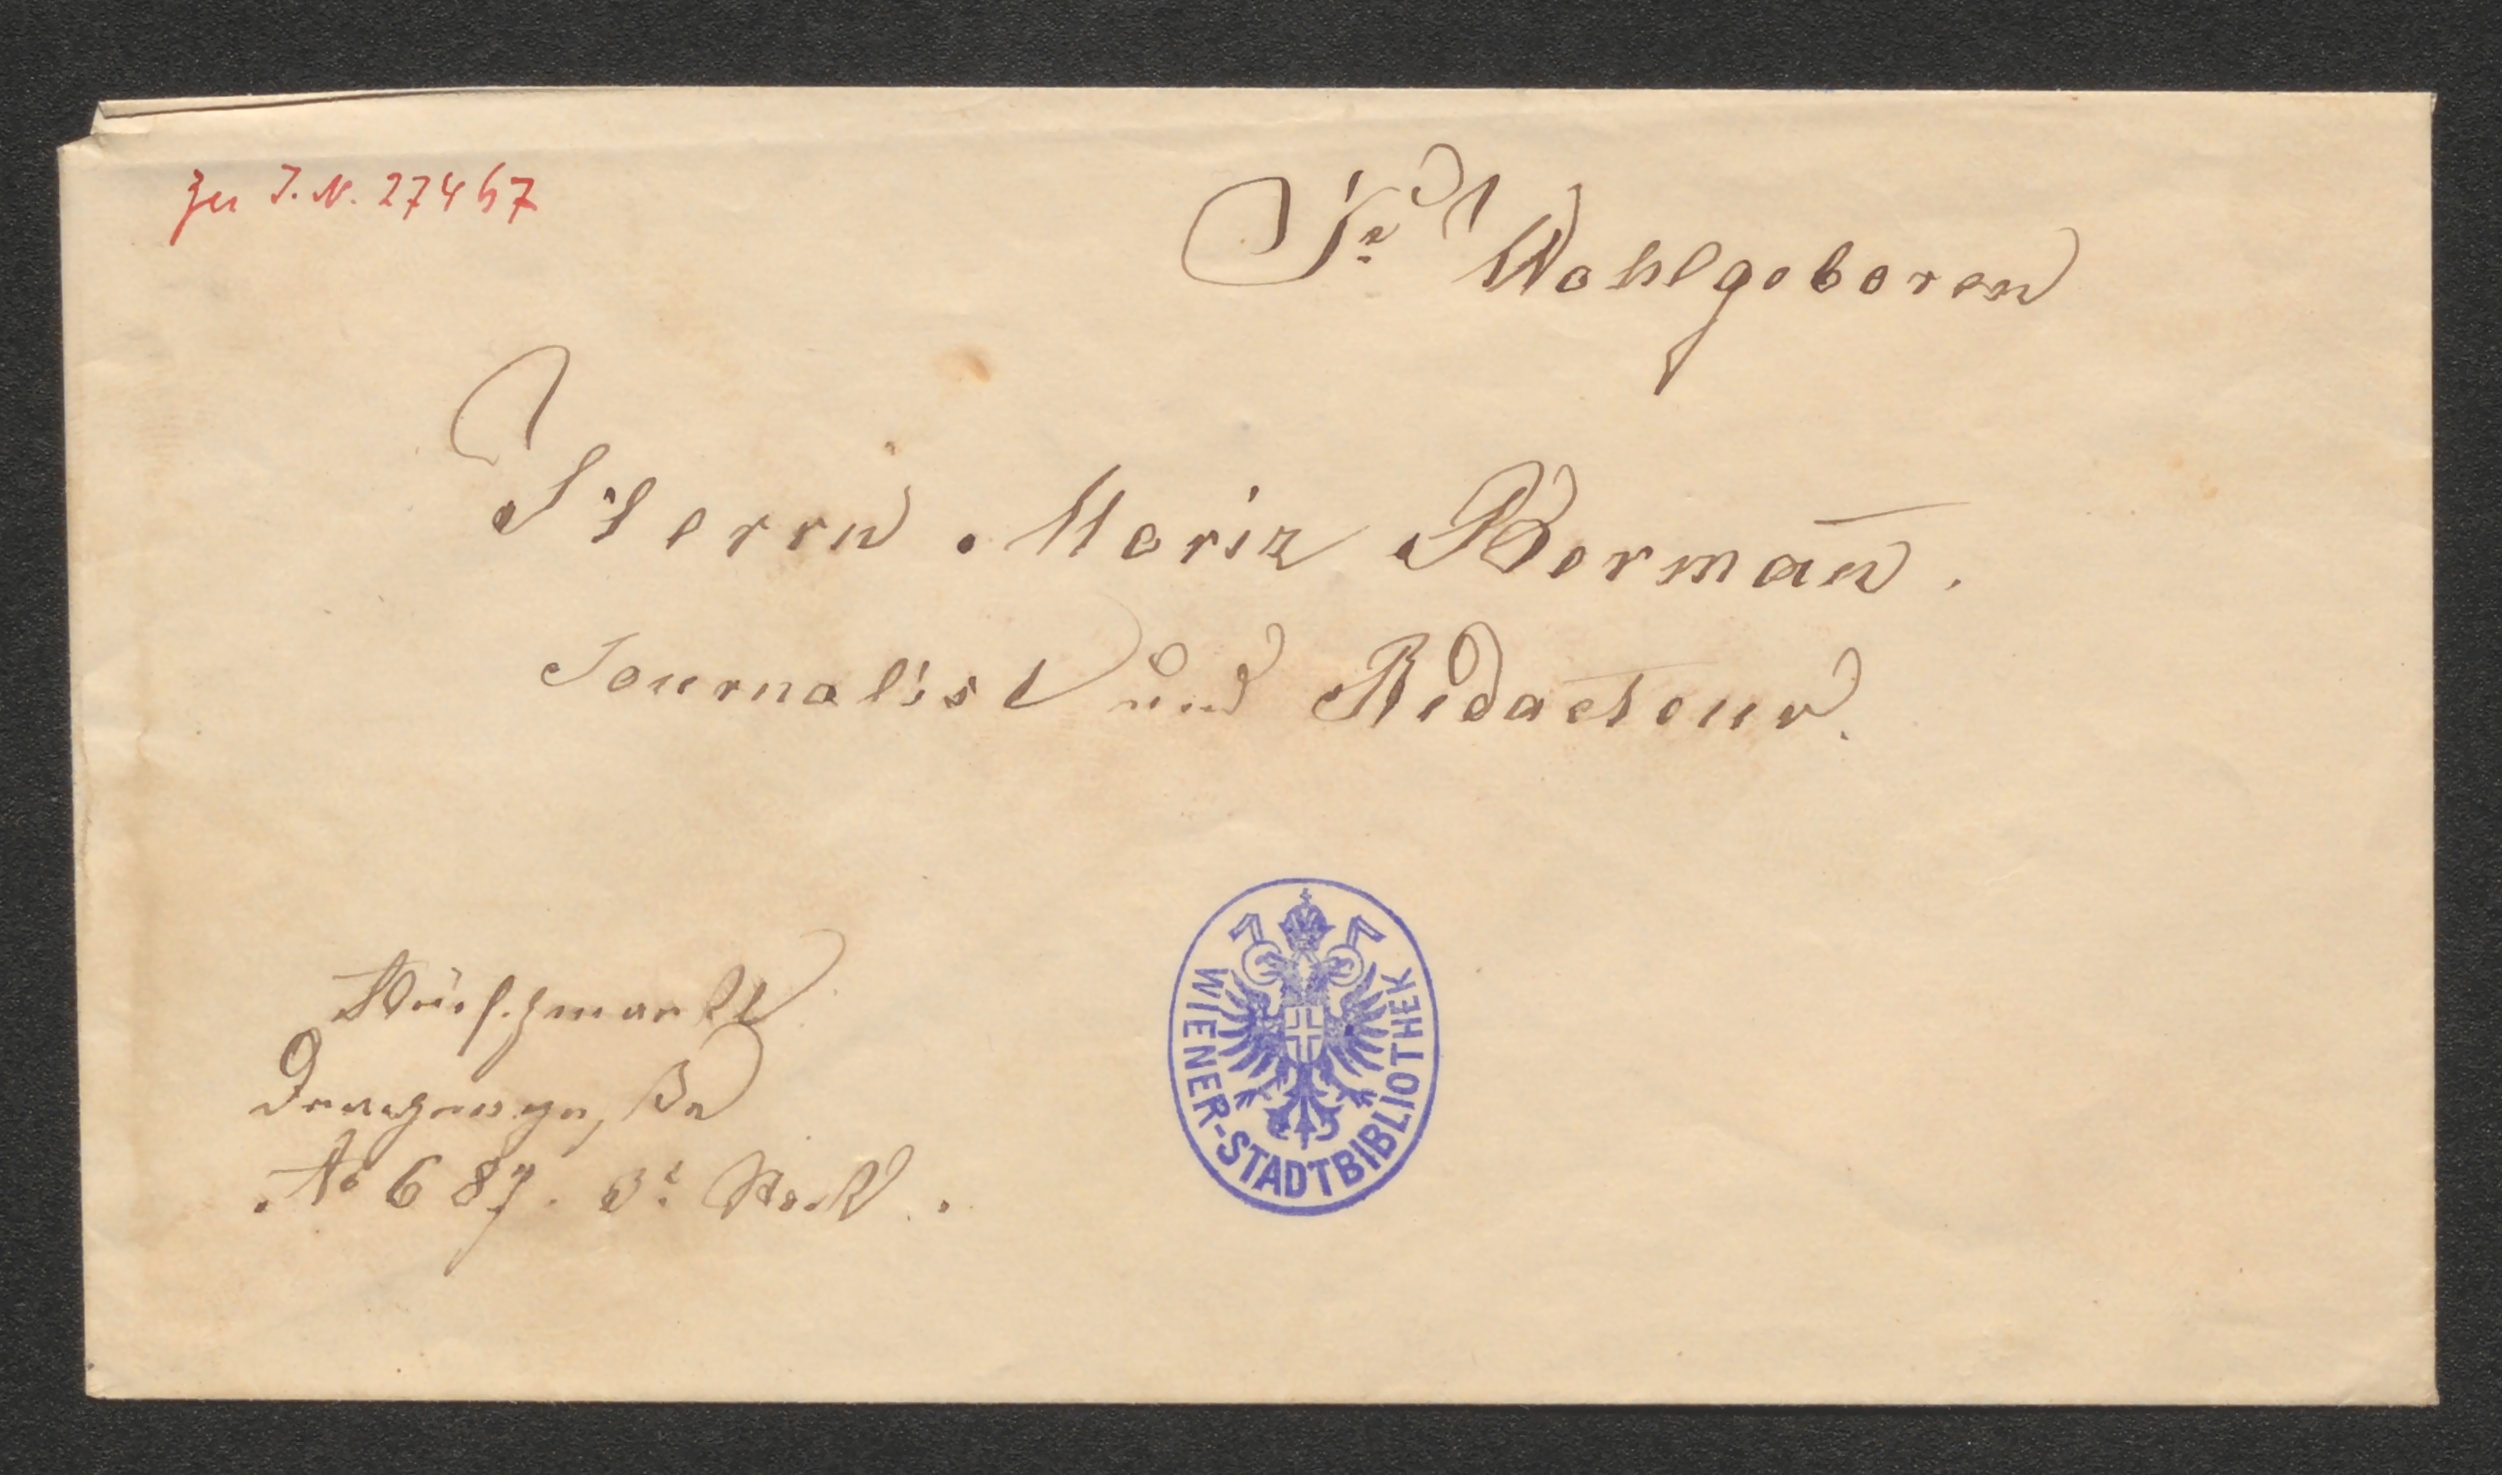 zu I.N. 27467
Sr. Wohlgeboren
Herrn Moriz Berman̄.
Journalist und Redacteur.
Fleischmarkt
Drachengaße
No 687. 3t. Stock.
WIENER-STADTBIBLIOTHEK